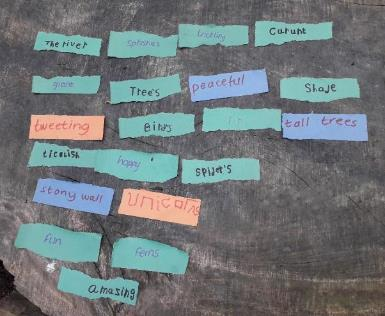 The river splashes trickling Carunt
Trees peaceful Shade
tweeting Birds tall trees
ticalish happy Spider's
stony wall unicorns
fun ferns
amazing